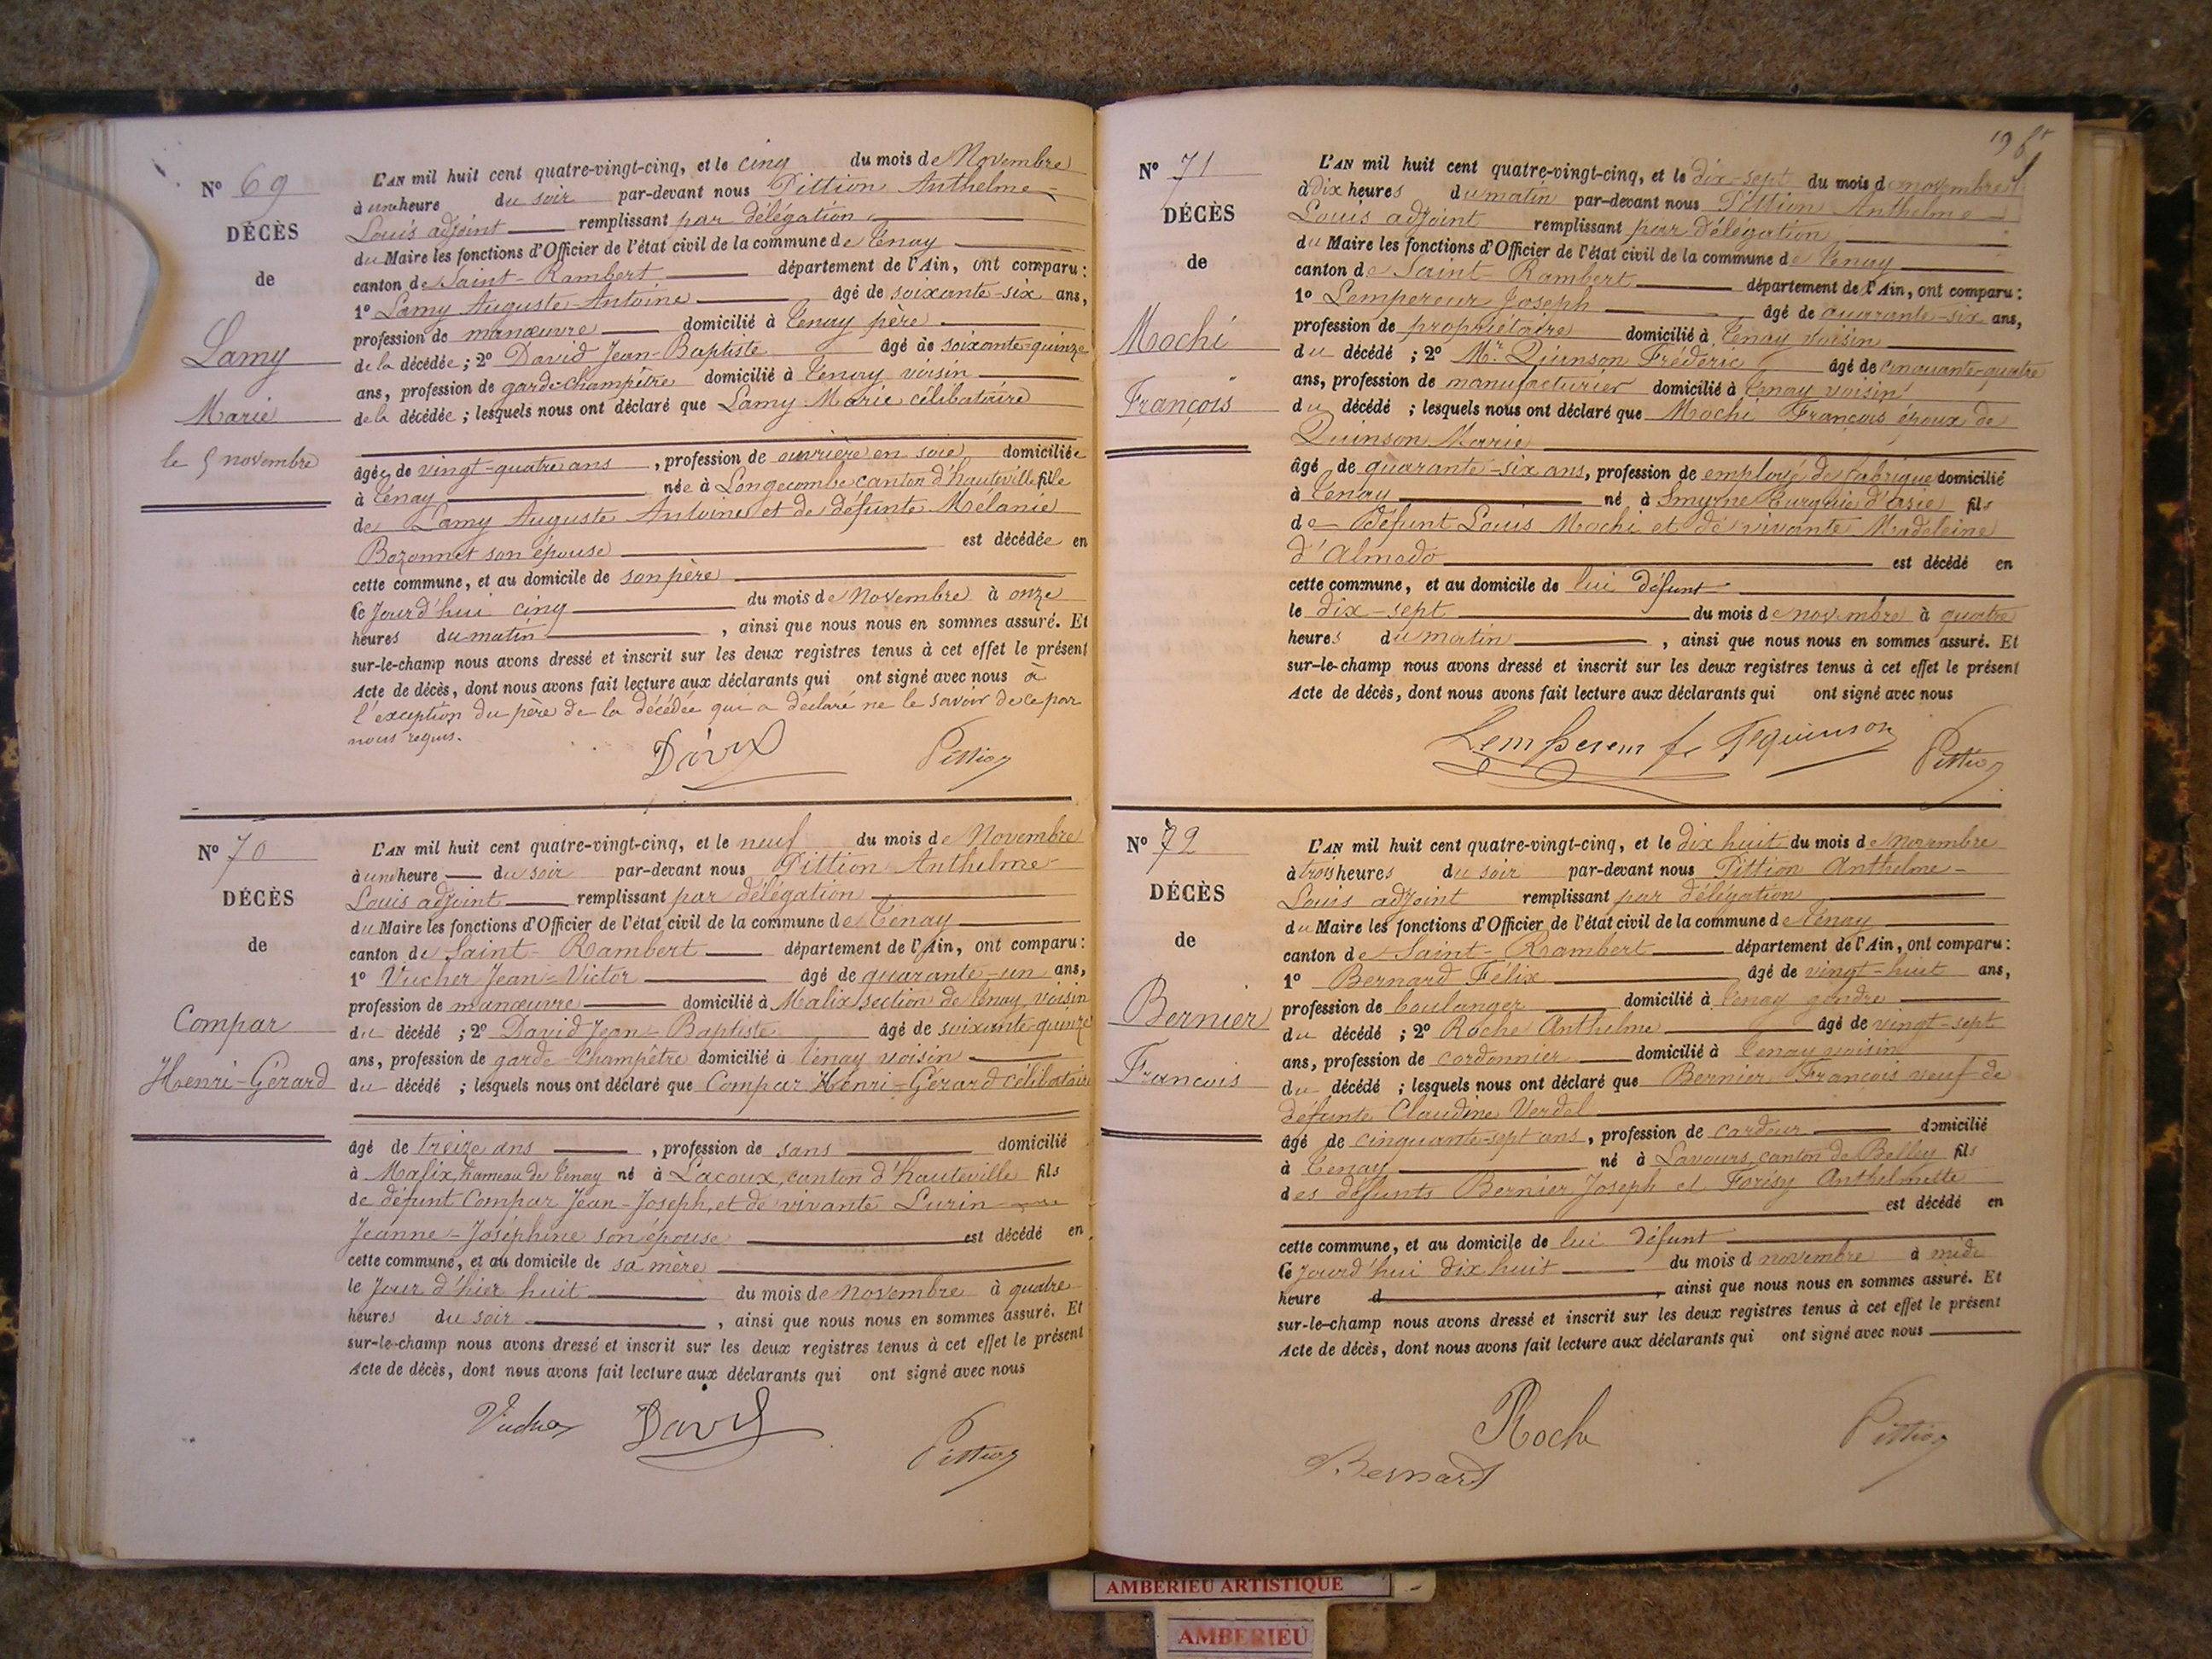 N° 69
DÉCÈS
de
Lamy
Marie
le 5 novembre
L'AN mil huit cent quatre-vingt-cinq, et le cinq du mois de Novembre
à une heure du soir par-devant nous Pittion Anthelme
Louis adjoint remplissant par délégation
du Maire les fonctions d'Officier de l'état civil de la commune de Tenay
canton de Saint-Rambert département de l'Ain, ont comparu :
1° Lamy Auguste Antoine âgé de soixante-six ans,
profession de manœuvre domicilié à Tenay père
de la décédée ; 2° David Jean-Baptiste âgé de soixante-quinze
ans, profession de garde-champêtre domicilié à Tenay voisin
de la décédée ; lesquels nous ont déclaré que Lamy Marie célibataire
âgée de vingt-quatre ans, profession de ouvrière en soie domiciliée
à Tenay née à Longecombe canton d'hauteville fille
de Lamy Auguste Antoine et de défunte Mélanie
Bozonnet son épouse est décédée en
cette commune, et au domicile de son père
Ce Jourd'hui cinq du mois de Novembre à onze
heures du matin, ainsi que nous nous en sommes assuré. Et
sur-le-champ nous avons dressé et inscrit sur les deux registres tenus à cet effet le présent
Acte de décès, dont nous avons fait lecture aux déclarants qui ont signé avec nous à
l'exception du père de la décédée qui a déclaré ne le savoir de ce par
nous requis.
David Pittion
N° 70
DÉCÈS
de
Compar
Henri-Gérard
L'AN mil huit cent quatre-vingt-cinq, et le neuf du mois de Novembre
à une heure du soir par-devant nous Pittion Anthelme
Louis adjoint remplissant par délégation
du Maire les fonctions d'Officier de l'état civil de la commune de Tenay
canton de Saint-Rambert département de l'Ain, ont comparu :
1° Vucher Jean-Victor âgé de quarante-un ans,
profession de manœuvre domicilié à Malix section de Tenay voisin
du décédé ; 2° David Jean-Baptiste âgé de soixante quinze
ans, profession de garde-champêtre domicilié à Tenay voisin
du décédé ; lesquels nous ont déclaré que Compar Henri-Gérard célibataire
âgé de treize ans, profession de sans domicilié
à Malix, hameau de Tenay né à Lacoux, canton d'hauteville fils
de défunt Compar Jean-Joseph, et de vivante Lurin
Jeanne-Joséphine son épouse est décédé en
cette commune, et au domicile de sa mère
le Jour d'hier huit du mois de Novembre à quatre
heures du soir, ainsi que nous nous en sommes assuré. Et
sur-le-champ nous avons dressé et inscrit sur les deux registres tenus à cet effet le présent
Acte de décès, dont nous avons fait lecture aux déclarants qui ont signé avec nous
Vucher David Pittion
N° 71
DÉCÈS
de
Mochi
François
L'AN mil huit cent quatre-vingt-cinq, et le dix-sept du mois de novembre
à dix heures du matin par-devant nous Pittion Anthelme
Louis adjoint remplissant par délégation
du Maire les fonctions d'Officier de l'état civil de la commune de Tenay
canton de Saint-Rambert département de l'Ain, ont comparu :
1° Lempereur Joseph âgé de quarante-six ans,
profession de propriétaire domicilié à Tenay voisin
du décédé ; 2° Mr Quinson Fréderic âgé de cinquante-quatre
ans, profession de manufacturier domicilié à Tenay voisin
du décédé ; lesquels nous ont déclaré que Mochi François époux de
Quinson Marie
âgé de quarante-six ans, profession de employé de fabrique domicilié
à Tenay né à Smyrne Turquie d'asie fils
de Défunt Louis Mochi et de vivante Madeleine
d'Almedo est décédé en
cette commune, et au domicile de lui défunt
le dix-sept du mois de novembre à quatre
heures du matin, ainsi que nous nous en sommes assuré. Et
sur-le-champ nous avons dressé et inscrit sur les deux registres tenus à cet effet le présent
Acte de décès, dont nous avons fait lecture aux déclarants qui ont signé avec nous
Pittion
N° 72
DÉCÈS
de
Bernier
François
L'AN mil huit cent quatre-vingt-cinq, et le dix huit du mois de Novembre
à trois heures du soir par-devant nous Pittion Anthelme
Louis adjoint remplissant par délégation
du Maire les fonctions d'Officier de l'état civil de la commune de Tenay
canton de Saint-Rambert département de l'Ain, ont comparu :
1° Bernard Félix âgé de vingt-huit ans,
profession de boulanger domicilié à Tenay gendre
du décédé ; 2° Roche Anthelme âgé de vingt-sept
ans, profession de cordonnier domicilié à Tenay voisin
du décédé ; lesquels nous ont déclaré que Bernier François veuf de
défunte Claudine Verdel
âgé de cinquante-sept ans, profession de cardeur domicilié
à Tenay né à Lavours, canton de Belley fils
des défunts Bernier Joseph et Forésy Anthelmette
est décédé en
cette commune, et au domicile de lui défunt
Ce Jourd'hui dix huit du mois d novembre à midi
heure d, ainsi que nous nous en sommes assuré. Et
sur-le-champ nous avons dressé et inscrit sur les deux registres tenus à cet effet le présent
Acte de décès, dont nous avons fait lecture aux déclarants qui ont signé avec nous
Roche Pittion
Bernard
AMBERIEU ARTISTIQUE
AMBERIEU